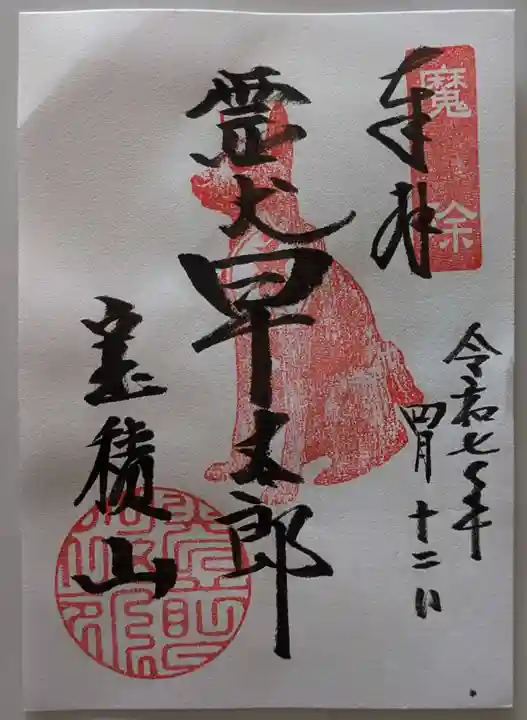 魔除
奉拝
令和七年
四月十二日
霊犬早太郎
宝積山